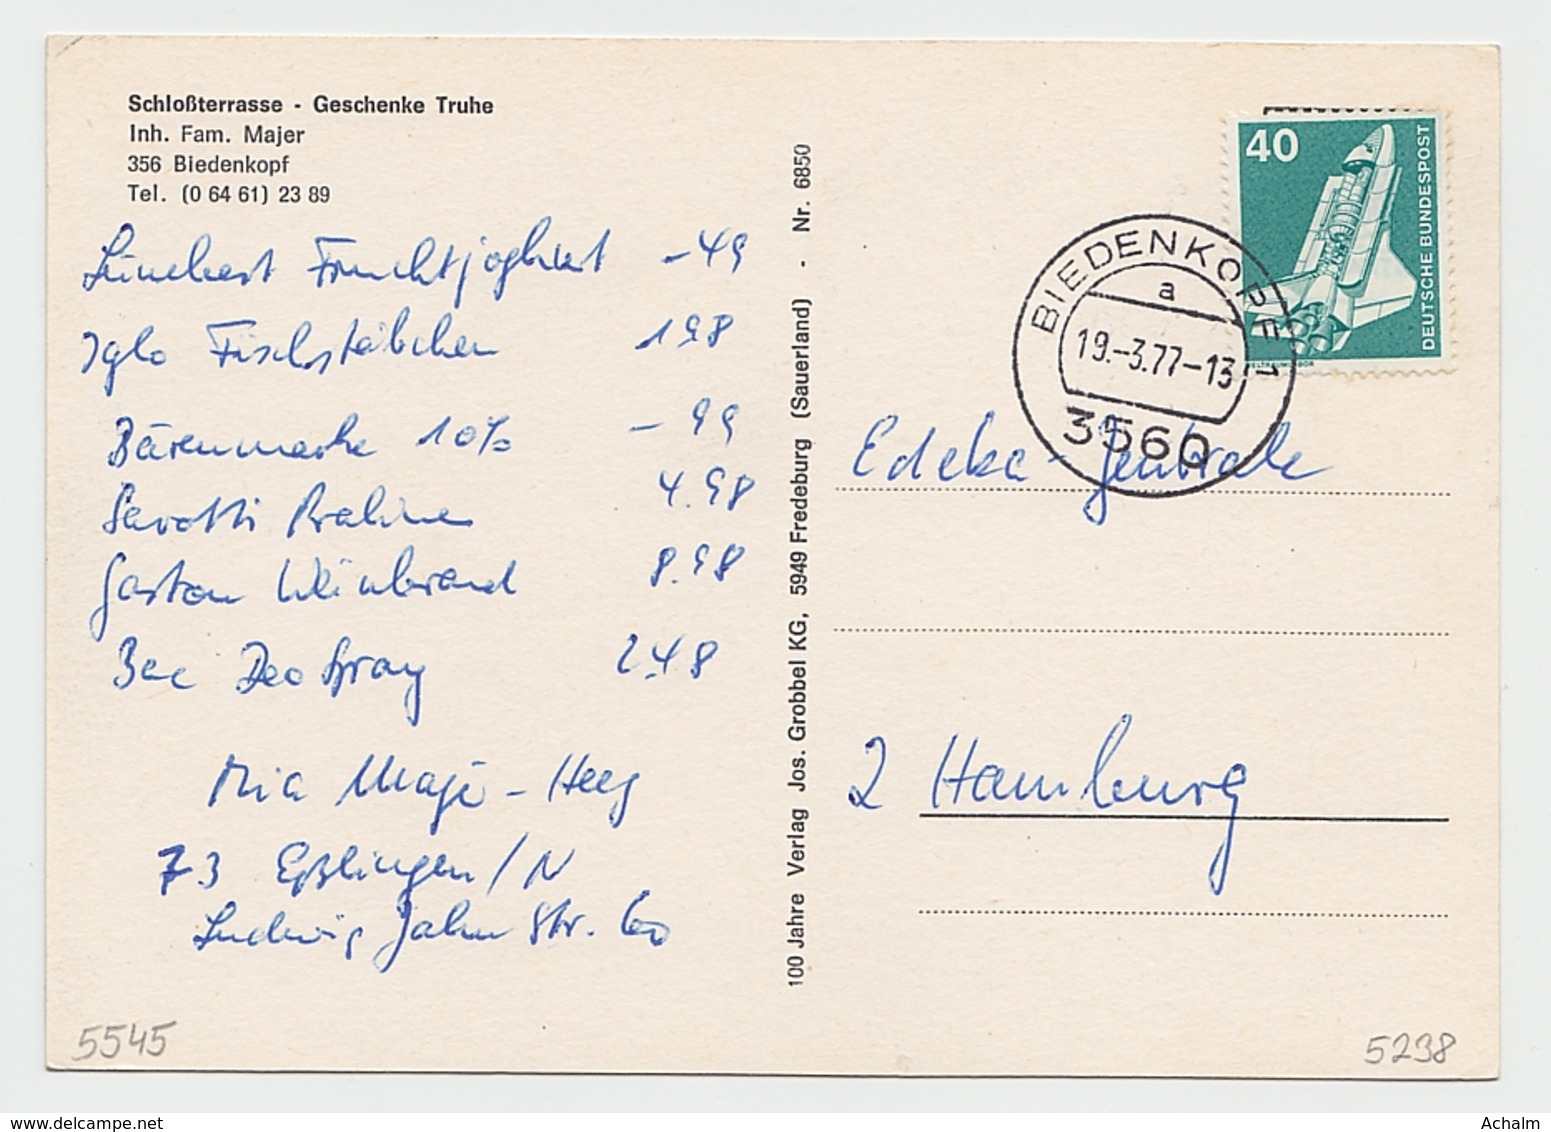 Schloßterrasse - Geschenke Truhe
Inh. Fam. Majer
356 Biedenkopf
Tel. (0 64 61) 23 89
Lünebest Fruchtjoghurt -49
Iglo Fischstäbchen 1 98
Bärenmarke 10% - 99
Sarotti Pralinen 4.98
Gaston Weinbrand 8.98
Bac Deo Spray 2.48
Mia Majer - Heeg
73 Eßlingen/N
Ludwig Jahn Str. 60
5545
100 Jahre Verlag Jos. Grobbel KG, 5949 Fredeburg (Sauerland) - Nr. 6850
40
DEUTSCHE BUNDESPOST
WELTRAUMLABOR
BIEDENKOPF 1
a
19.-3.77-13
3560
Edeka - Zentrale
2 Hamburg
5238
www.delcampe.net
Achalm